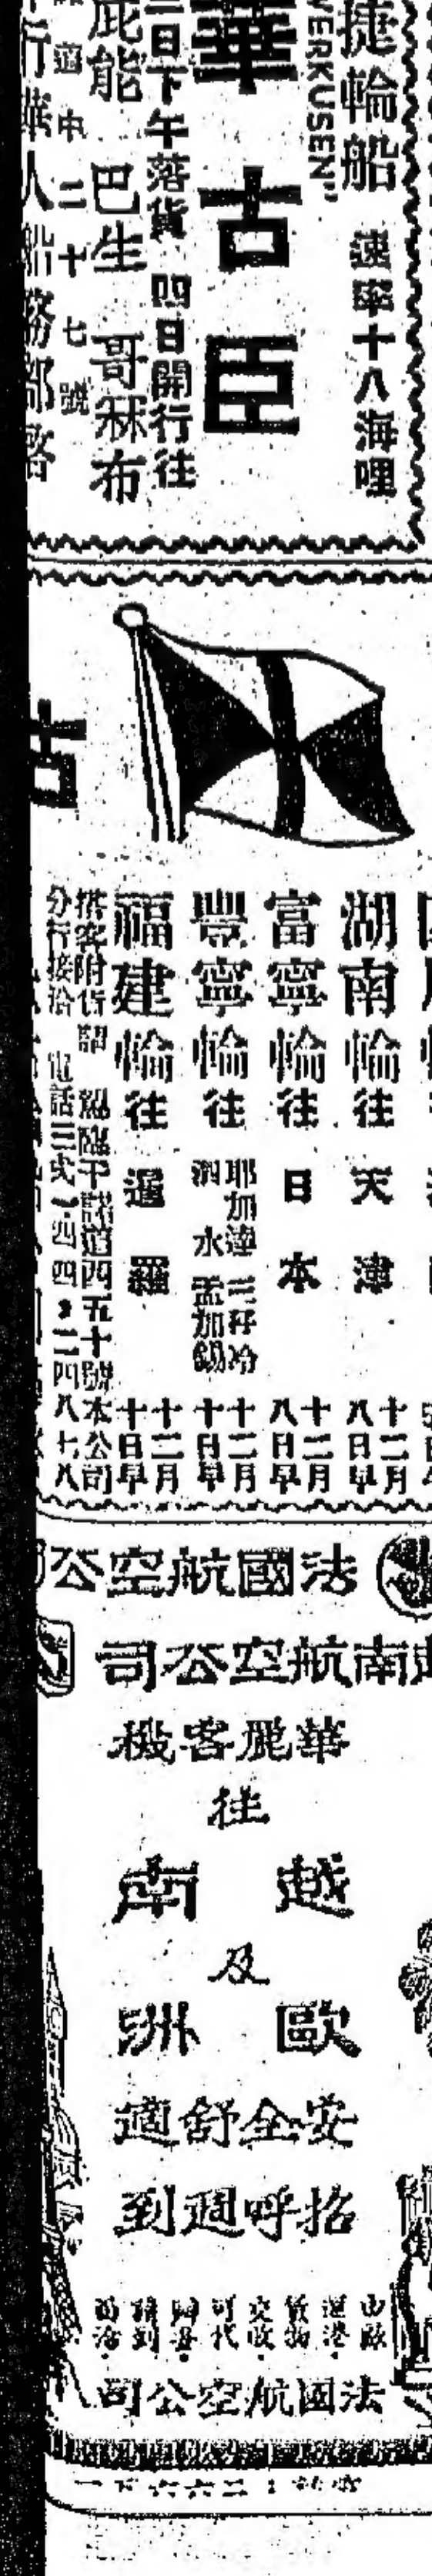 捷輪船 速率十八海哩
VERKUSEN"
華古臣
日下午落貨 四日開行往
庇能 巴生 哥冧布
適中 二十七號
行華人船務部啓
古
湖南輪往天津 十二月八日早
富寧輪往日本 十二月八日早
豐寧輪往 耶加達 三孖冷 泗水 孟加錫 十二月十日早
福建輪往暹羅 十二月十日早
搭客附貨請 臨干諾道四五十號本公司
分行接洽 電話三 四四 二四八七八
法國航空公
越南航空公司
華麗客機
往
越南
及
歐洲
安全舒適
招呼週到
由歐運港貨物交收可代歸 請到面洽
法國航空公司